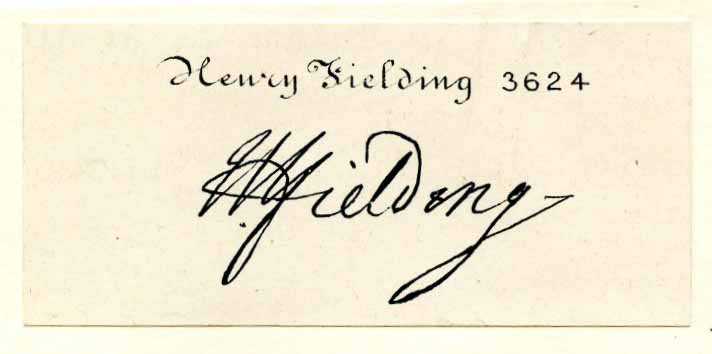 Henry Fielding 3624
HFielding